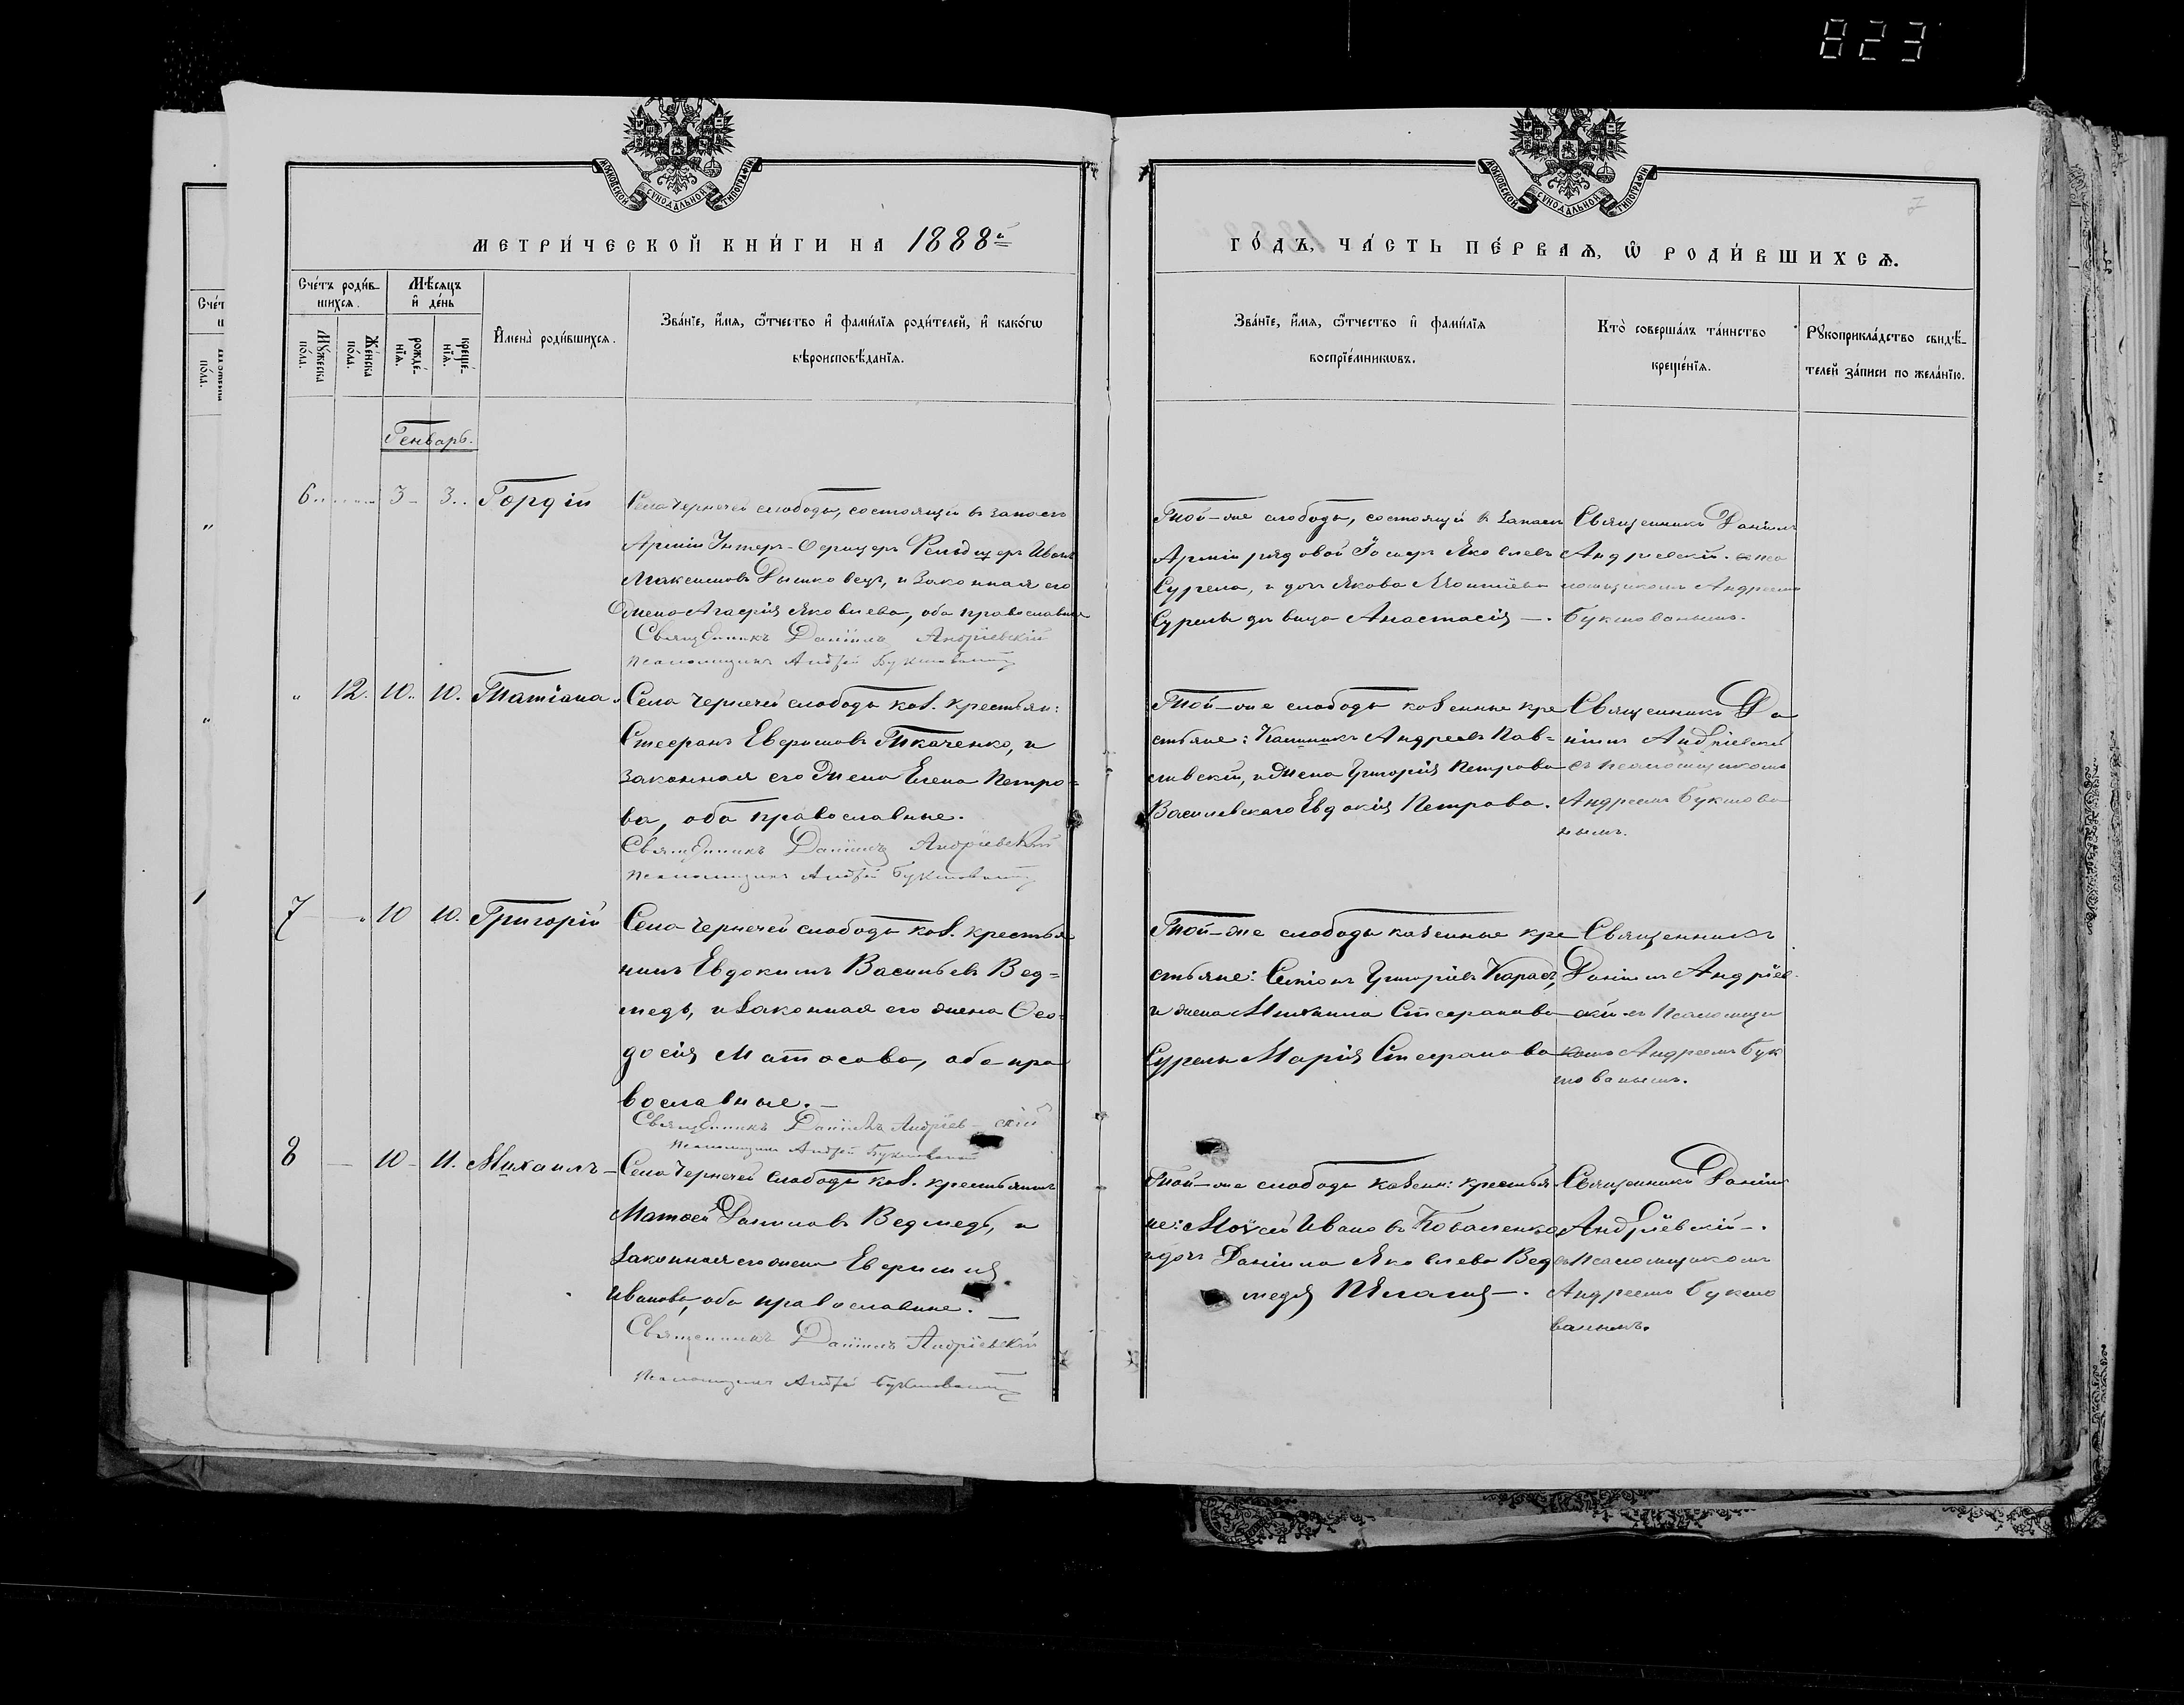 823
МОСКОВСКОЙ СѴНОДАЛЬНОЙ ТИПОГРАФІИ
МЕТРИ́ЧЕСКОЙ КНИ́ГИ НА 1888й
Сче́тъ роди́в-
шихся.
Мѣ́сяцъ
и҆ де́нь
Мꙋ́жеска
по́ла.
Же́нска
по́ла.
рожде́-
нїѧ.
креще́-
нїѧ.
И҆мена̀ роди́вшихсѧ.
Зва́нїе, и҆́мѧ, ѻ҆́тчество и҆ фами́лїѧ роди́телей, и҆ како́гѡ
вѣроисповѣ́данїѧ.
Генварь.
6 3 3 Гордій
Села Чернечей слободы, состоящій въ запасѣ
Арміи Унтеръ-Офицеръ Иванъ
Максимовъ, и законная его
жена Агафія Яковлева, оба православные
Священникъ Даніилъ Андріевскій
Псаломщикъ Андрей
" 12. 10. 10. Татіана
Села Чернечей слободы каз. крестьян:
Стефанъ Евфимовъ Ткаченко, и
законная его жена Елена Петро-
ва, оба православные.
Священникъ Даніилъ Андріевскій
Псаломщикъ Андрей
7 10 10. Григорій
Села Чернечей слободы каз. крестья
нинъ Евдокимъ Васильевъ Вед=
медь, и законная его жена Ѳео-
досія Матѳеева, оба пра
вославные.
Священникъ Даніилъ Андріев-скій
Псаломщикъ Андрей
8 10 11. Михаилъ
Села Чернечей слободы каз. крестьянинъ
Матѳей Даниловъ Ведмедь, и
законная его жена Евфимія
Иванова, оба православные.
Священникъ Даніилъ Андріевскій
Псаломщикъ Андрей
МОСКОВСКОЙ СѴНОДАЛЬНОЙ ТИПОГРАФІИ
ГО́ДЪ, ЧА́СТЬ ПЕ́РВАѦ, Ѡ҆ РОДИ́ВШИХСѦ.
Зва́нїе, и҆́мѧ, ѻ҆́тчество и҆ фами́лїѧ
воспрїе́мникѡвъ.
Кто̀ соверша́лъ та́инство
креще́нїѧ.
Рꙋкоприкла́дство свидѣ́-
телей за́писи по жела́нїю.
Той-же слободы, состоящій въ запасѣ
Арміи рядовой Яковлевъ
Сурела, и дочь Якова
Сурели дѣвица Анастасія
Священникъ Даніилъ
Андріевскій. съ пса
ломщикомъ Андреемъ
Той-же слободы казенные кре
стьяне: Каллиникъ Андреевъ Пав=
ловскій, и жена Григорія Петрова
Василевскаго Евдокія Петрова.
Священникъ Да
ніилъ Андріевскій
съ псаломщикомъ
Андреемъ
Той-же слободы казенные кре
стьяне: Григоріевъ Карась,
и жена Михаила Стефанова
Сурели Марія Стефанова
Священникъ
Даніилъ Андріев
скій съ псаломщи
комъ Андреемъ
Той-же слободы казен: крестья
не: Моѵсей Ивановъ Коваленко
и дочь Даніила Яковлева Вед
медя Пелагія.
Священникъ Даніилъ
Андріевскій.
съ псаломщикомъ
Андреемъ